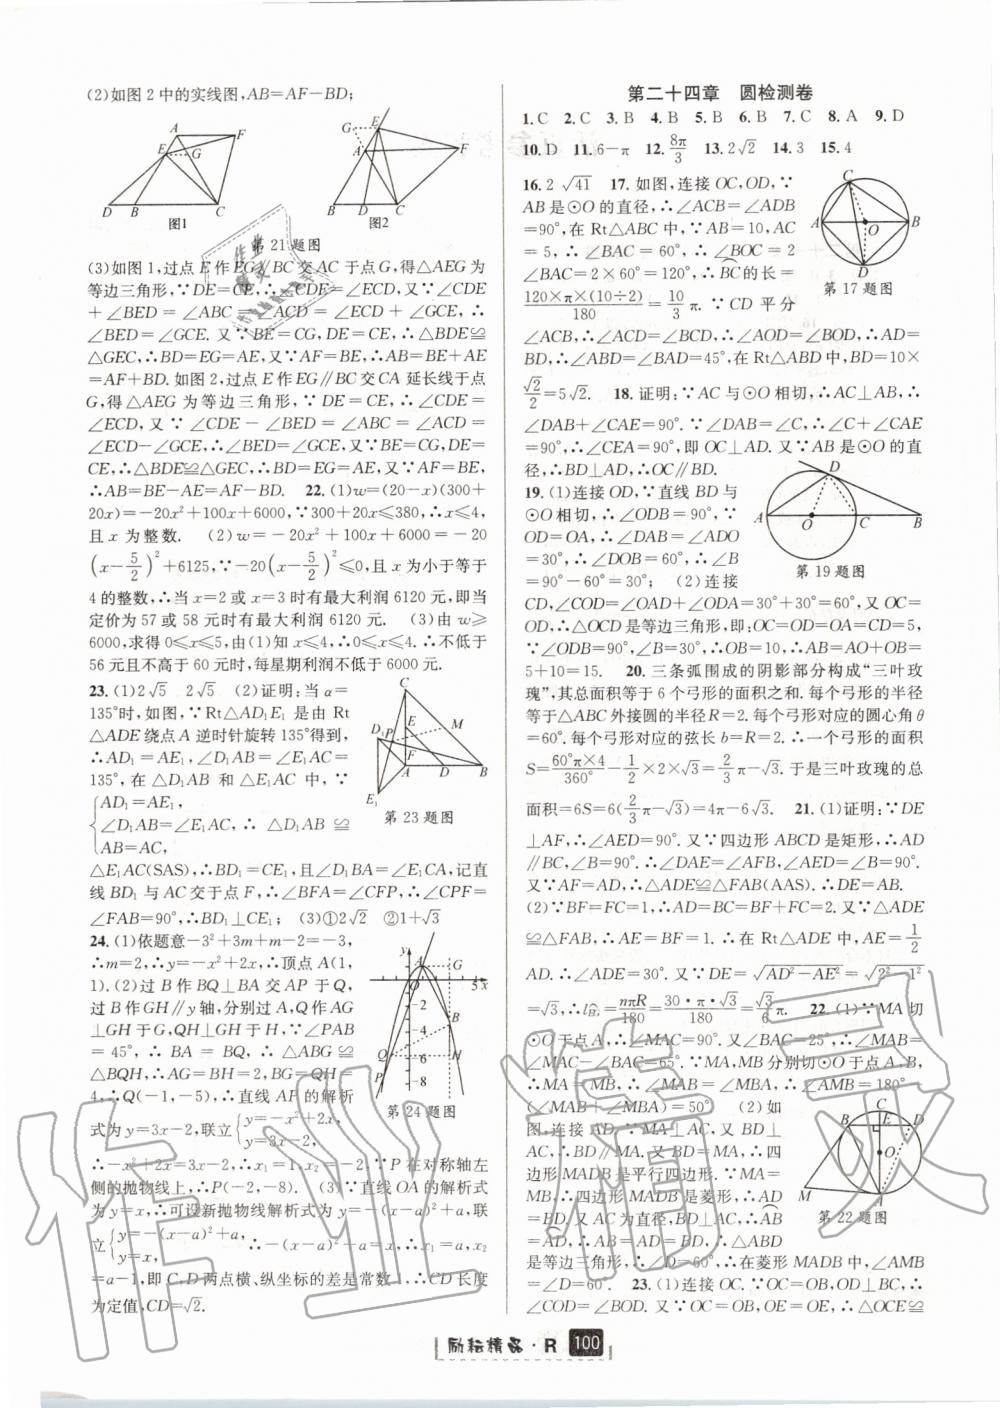 (2)如图2中的实线图,AB=AF-BD;
A
E
F
G
D
B
C
图1
G
E
A
F
B
D
C
图2
第21题图
(3)如图1,过点E作EG∥BC交AC于点G,得△AEG为
等边三角形,∵DE=CE,∴∠CDE=∠ECD,又∵∠CDE
+∠BED=∠ABC=∠ACD=∠ECD+∠GCE,∴
∠BED=∠GCE.又∵BE=CG,DE=CE,∴△BDE≌
△GEC,∴BD=EG=AE,又∵AF=BE,∴AB=BE+AE
=AF+BD.如图2,过点E作EG∥BC交CA延长线于点
G,得△AEG为等边三角形,∵DE=CE,∴∠CDE=
∠ECD,又∵∠CDE-∠BED=∠ABC=∠ACD=
∠ECD-∠GCE,∴∠BED=∠GCE.又∵BE=CG,DE=
CE,∴△BDE≌△GEC,∴BD=EG=AE,又∵AF=BE,
∴AB=BE-AE=AF-BD. 22.(1)w=(20-x)(300+
20x)=-20x²+100x+6000,∵300+20x≤380,∴x≤4,
且x为整数. (2)w=-20x²+100x+6000=-20
(x-5/2)²+6125,∵-20(x-5/2)²≤0,且x为小于等于
4的整数,∴当x=2或x=3时有最大利润6120元,即当
定价为57或58元时有最大利润6120元. (3)由w≥
6000,求得0≤x≤5,由(1)知x≤4,∴0≤x≤4.∴不低于
56元且不高于60元时,每星期利润不低于6000元.
23.(1)2√5 2√5 (2)证明:当α=
135°时,如图,∵Rt△AD₁E₁是由Rt
△ADE绕点A逆时针旋转135°得到,
∴AD₁=AE₁,∠D₁AB=∠E₁AC=
135°,在△D₁AB和△E₁AC中,∵
{AD₁=AE₁,
∠D₁AB=∠E₁AC,∴△D₁AB≌
AB=AC,
C
E
M
D₁
P
F
A
D
B
E₁
第23题图
△E₁AC(SAS),∴BD₁=CE₁,且∠D₁BA=∠E₁CA,记直
线BD₁与AC交于点F,∴∠BFA=∠CFP,∴∠CPF=
∠FAB=90°,∴BD₁⊥CE₁; (3)①2√2 ②1+√3
24.(1)依题意-3²+3m+m-2=-3,
∴m=2,∴y=-x²+2x,∴顶点A(1,
1).(2)过B作BQ⊥BA交AP于Q,
过B作GH∥y轴,分别过A,Q作AG
⊥GH于G,QH⊥GH于H,∵∠PAB
=45°,∴BA=BQ,∴△ABG≌
△BQH,∴AG=BH=2,BG=QH=
4,∴Q(-1,-5),∴直线AP的解析
式为y=3x-2,联立{y=-x²+2x,
y=3x-2,
y
A
G
O
5
x
-2
-4
B
Q
-6
H
P
-8
第24题图
∴-x²+2x=3x-2,∴x₁=1,x₂=-2.∵P在对称轴左
侧的抛物线上,∴P(-2,-8). (3)∵直线OA的解析式
为y=x,∴可设新抛物线解析式为y=-(x-a)²+a,联
立{y=-(x-a)²+a,
y=x,
∴x=-(x-a)²+a,∴x₁=a,x₂
=a-1,即C,D两点横、纵坐标的差是常数,∴CD长度
为定值,CD=√2.
第二十四章 圆检测卷
1.C 2.C 3.B 4.B 5.B 6.B 7.C 8.A 9.D
10.D 11.6-π 12.8π/3 13.2√2 14.3 15.4
16.2 √41 17.如图,连接OC,OD,∵
AB是⊙O的直径,∴∠ACB=∠ADB
=90°,在Rt△ABC中,∵AB=10,AC
=5,∴∠BAC=60°,∴∠BOC=2
∠BAC=2×60°=120°,∴BC的长=
120×π×(10÷2)/180=10/3π.∵CD平分
C
A
O
B
D
第17题图
∠ACB,∴∠ACD=∠BCD,∴∠AOD=∠BOD,∴AD=
BD,∴∠ABD=∠BAD=45°,在Rt△ABD中,BD=10×
√2/2=5√2. 18.证明:∵AC与⊙O相切,∴AC⊥AB,∴
∠DAB+∠CAE=90°.∵∠DAB=∠C,∴∠C+∠CAE
=90°,∴∠CEA=90°,即OC⊥AD.又∵AB是⊙O的直
径,∴BD⊥AD,∴OC∥BD.
19.(1)连接OD,∵直线BD与
⊙O相切,∴∠ODB=90°,∵
OD=OA,∴∠DAB=∠ADO
=30°,∴∠DOB=60°,∴∠B
=90°-60°=30°; (2)连接
D
A
O
C
B
第19题图
CD,∠COD=∠OAD+∠ODA=30°+30°=60°,又OC=
OD,∴△OCD是等边三角形,即:OC=OD=CD=5,
∵∠ODB=90°,∠B=30°,∴OB=10,∴AB=AO+OB=
5+10=15. 20.三条弧围成的阴影部分构成“三叶玫
瑰”,其总面积等于6个弓形的面积之和.每个弓形的半径
等于△ABC外接圆的半径R=2.每个弓形对应的圆心角θ
=60°.每个弓形对应的弦长b=R=2.∴一个弓形的面积
S=60°π×4/360°-1/2×2×√3=2/3π-√3.于是三叶玫瑰的总
面积=6S=6(2/3π-√3)=4π-6√3. 21.(1)证明:∵DE
⊥AF,∴∠AED=90°.又∵四边形ABCD是矩形,∴AD
∥BC,∠B=90°.∴∠DAE=∠AFB,∠AED=∠B=90°.
又∵AF=AD,∴△ADE≌△FAB(AAS).∴DE=AB.
(2)∵BF=FC=1,∴AD=BC=BF+FC=2.又∵△ADE
≌△FAB,∴AE=BF=1.∴在Rt△ADE中,AE=1/2
AD.∴∠ADE=30°.又∵DE=√AD²-AE²=√2²-1²
=√3,∴l=nπR/180=30·π·√3/180=√3/6π. 22.(1)∵MA切
⊙O于点A,∴∠MAC=90°.又∠BAC=25°,∴∠MAB=
∠MAC-∠BAC=65°.∵MA,MB分别切⊙O于点A,B,
∴MA=MB,∴∠MAB=∠MBA,∴∠AMB=180°-
(∠MAB+∠MBA)=50°. (2)如
图,连接AD.∵MA⊥AC,又BD⊥
AC,∴BD∥MA.又∵BD=MA,∴四
边形MADB是平行四边形.∵MA=
MB,∴四边形MADB是菱形,∴AD
=BD.又∵AC为直径,BD⊥AC,∴AB
=AD,∴AB=AD=BD,∴△ABD
C
B
E
D
O
M
A
第22题图
是等边三角形,∴∠D=60°,∴在菱形MADB中,∠AMB
=∠D=60°. 23.(1)连接OC.∵OC=OB,OD⊥BC,∴
∠COD=∠BOD.又∵OC=OB,OE=OE,∴△OCE≌
励耘精品·R 100
作业精灵